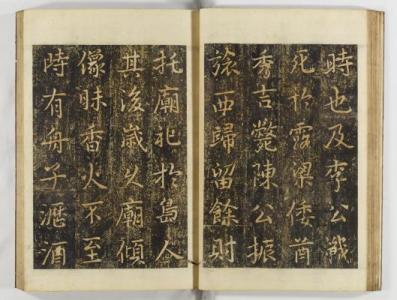 時也及李公戰
死於露梁倭酋
秀吉斃陳公振
旅西歸留餘財
托廟祀於島人
其後歲久廟傾
像昧香火不至
時有舟子瀝酒